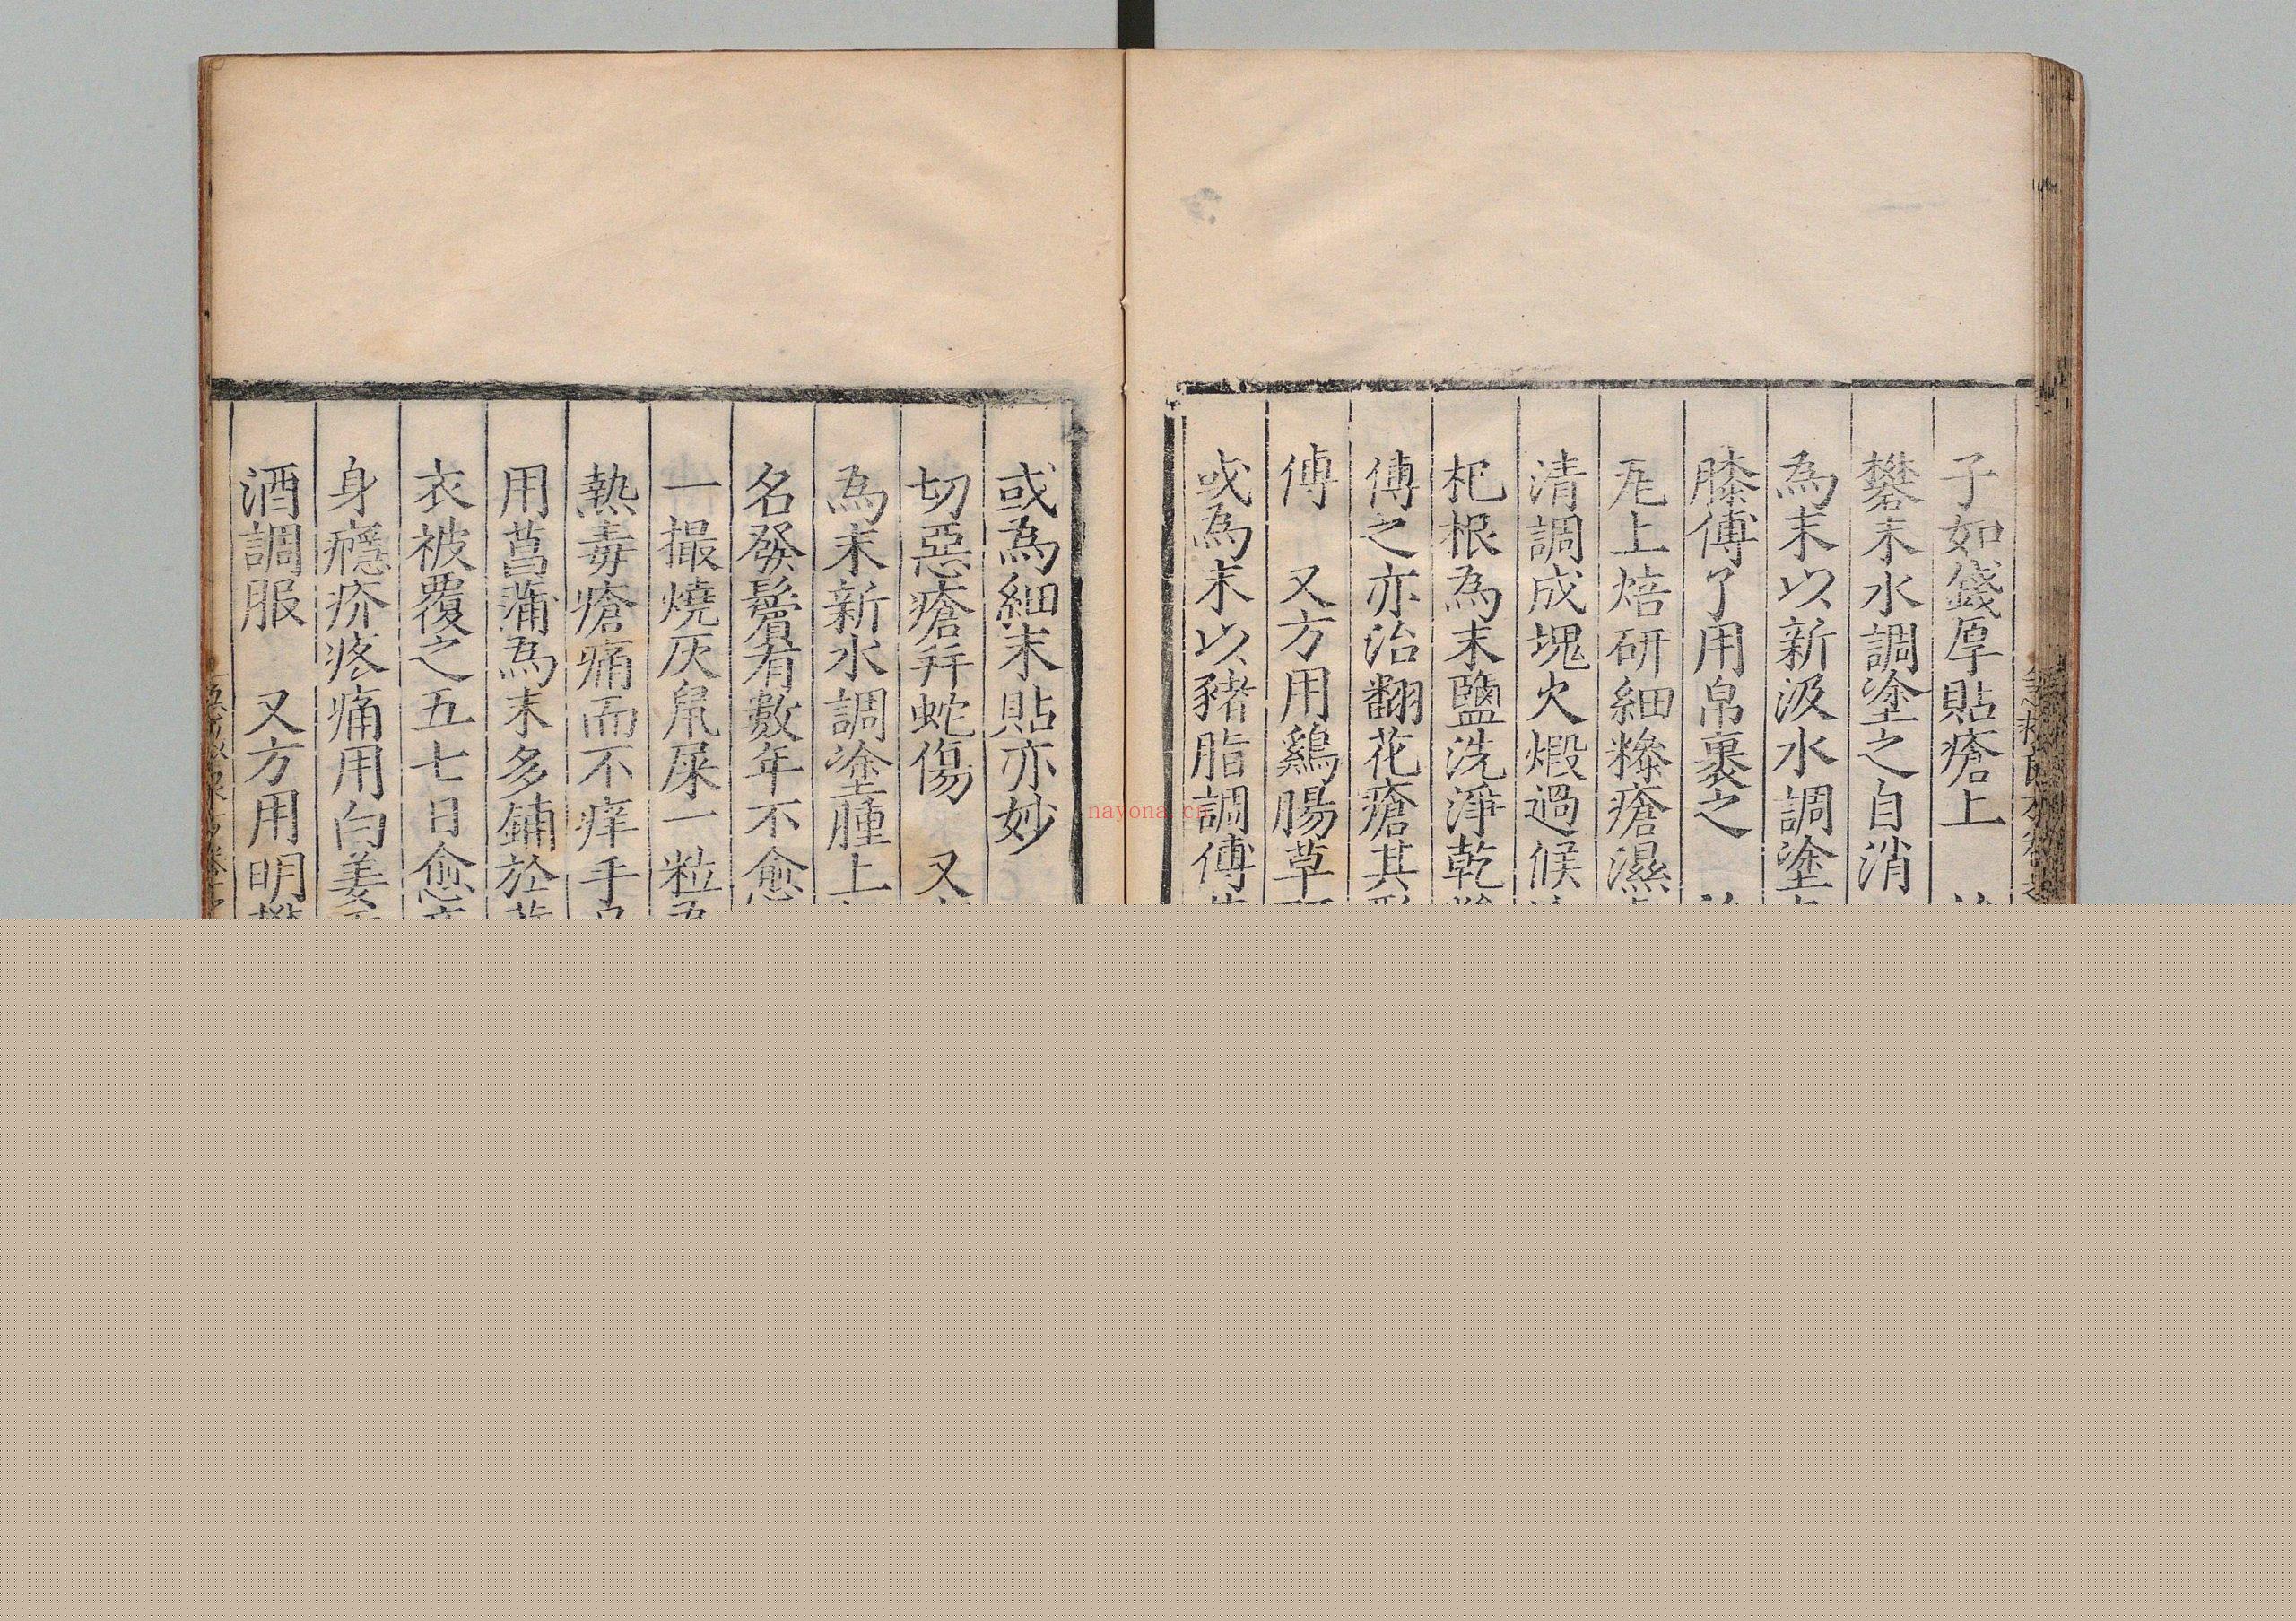 子如錢厚貼瘡上
礬末水調塗之自消
為末以新汲水調塗
膝傅了用帛裹之
瓦上焙研細糝瘡濕
清調成塊火煅過候
杞根為末鹽洗淨乾
傅之亦治翻花瘡其
傅　又方用鷄腸草
或為末以豬脂調傅
或為細末貼亦妙
切惡瘡并蛇傷　又
為末新水調塗腫上
名發鬢有數年不愈
一撮燒灰鼠屎一粒
熱毒瘡痛而不痒手
用菖蒲為末多鋪於
衣被覆之五七日愈
身癮疥疼痛用白姜
酒調服　又方用明
nayona.cn